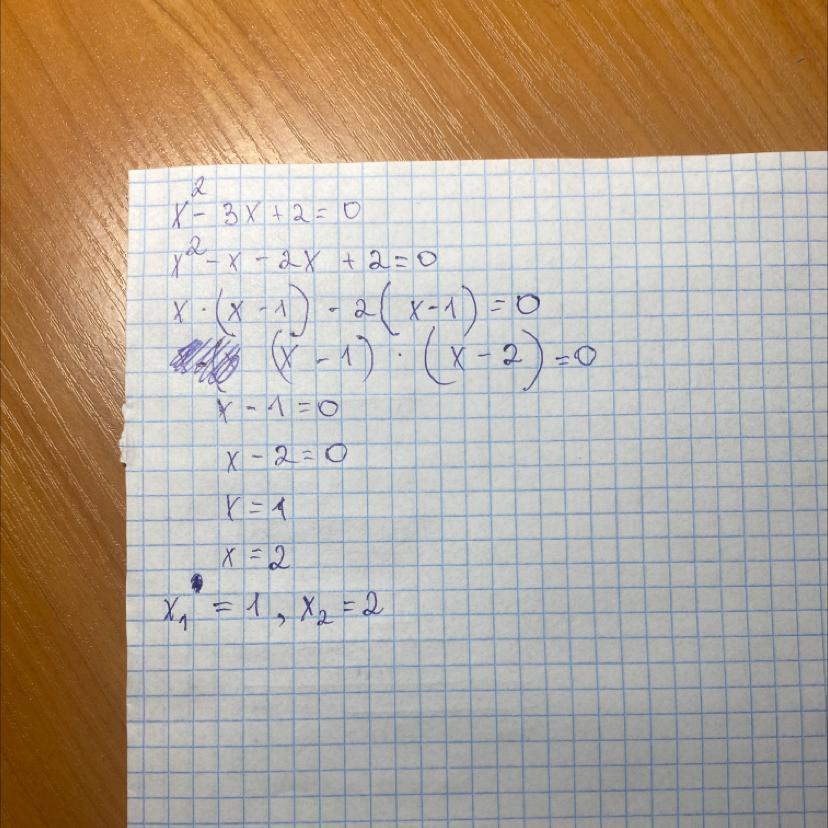 x² - 3x + 2 = 0
x² - x - 2x + 2 = 0
x · (x - 1) - 2(x - 1) = 0
(x - 1) · (x - 2) = 0
x - 1 = 0
x - 2 = 0
x = 1
x = 2
x₁ = 1, x₂ = 2